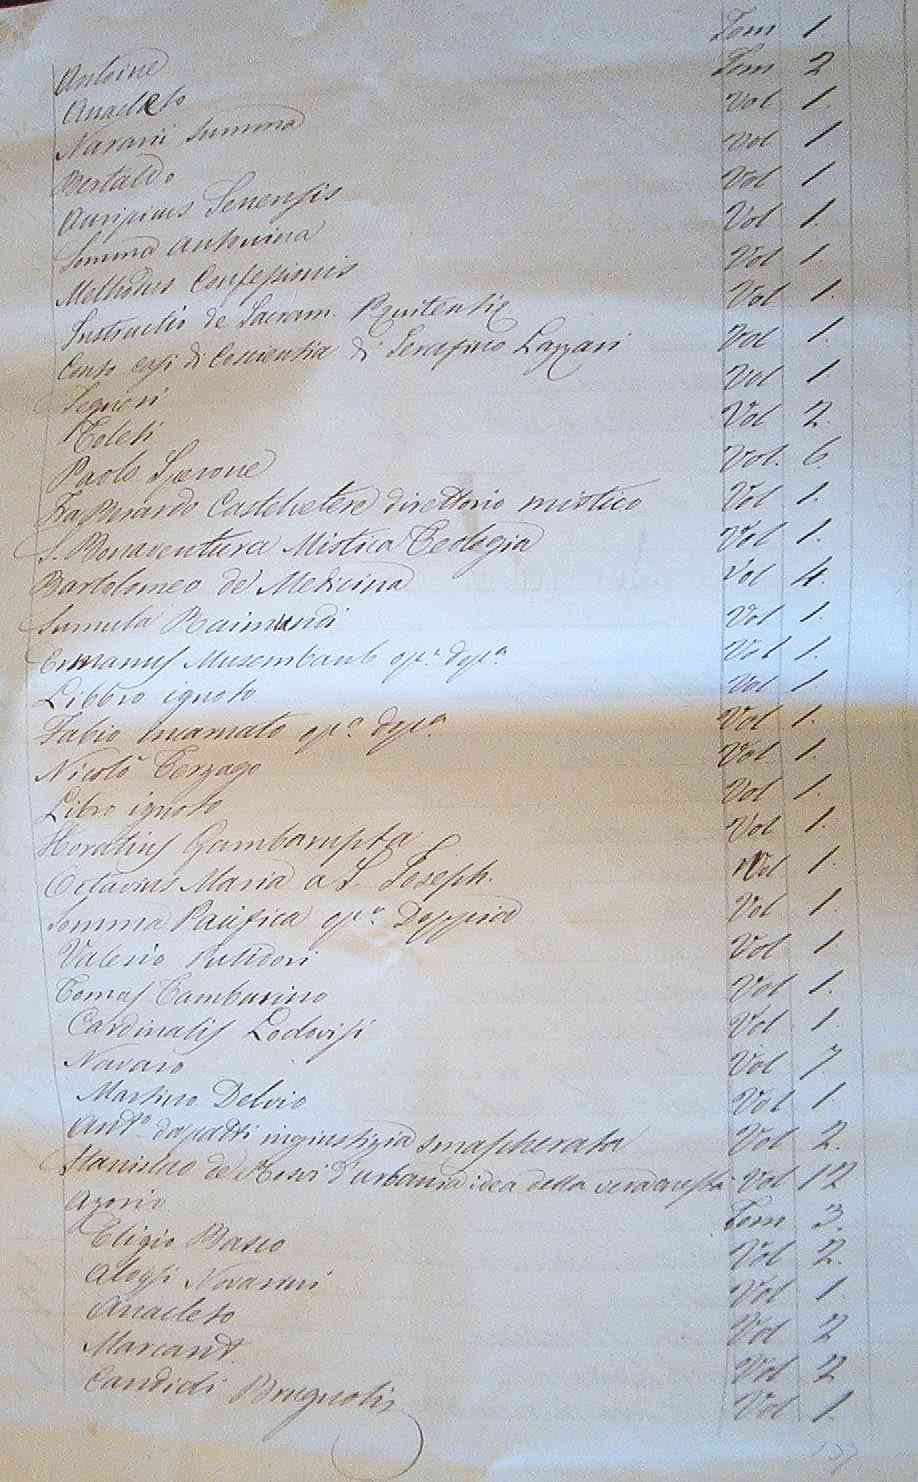 Antoine Tom 1
Anacleto Tom 2
Navarri Summa Vol 1.
Bertaldo Vol 1
Auripius Senensis Vol 1
Somma Antonina Vol 1.
Methodus Confessionis Vol 1
Instructio de Sacram. Penitentie Vol 1.
Cento casi di Coscientia di Serafino Lazzari Vol 1.
Segneri Vol 1.
Toleti Vol 2.
Paolo Vol. 6.
Fra Berardo Castelvetere direttorio mistico Vol 1.
S. Bonaventura Mistica Teologia Vol 1.
Bartolomeo de Medicina Vol 4.
Sumula Raimundi Vol 1.
Ermanus Musembaub op.ª dop.ª Vol 1.
Libbro ignoto Vol 1
Fabio Inamato op.ª dop.ª Vol 1.
Nicolò Terzago Vol 1.
Libro ignoto Vol 1.
Horatius Vol 1.
Octavius Maria a S. Joseph. Vol 1.
Somma Pacifica op.ª Doppia Vol 1.
Valerio Vol 1
Tomas Tamburino Vol 1.
Cardinalis Lodovisi Vol 1.
Navaro Vol 7
Martino Delrio Vol 1
Ant.º ingiustizia smascherata Vol 2.
Stanislao de idea della vera Vol 12
Azorio Tom 3.
Eligio Vol 2.
Aloysi Novarini Vol 1.
Anacleto Vol 2
Marcant. Vol 2
Candidi Brugnolis Vol 1.